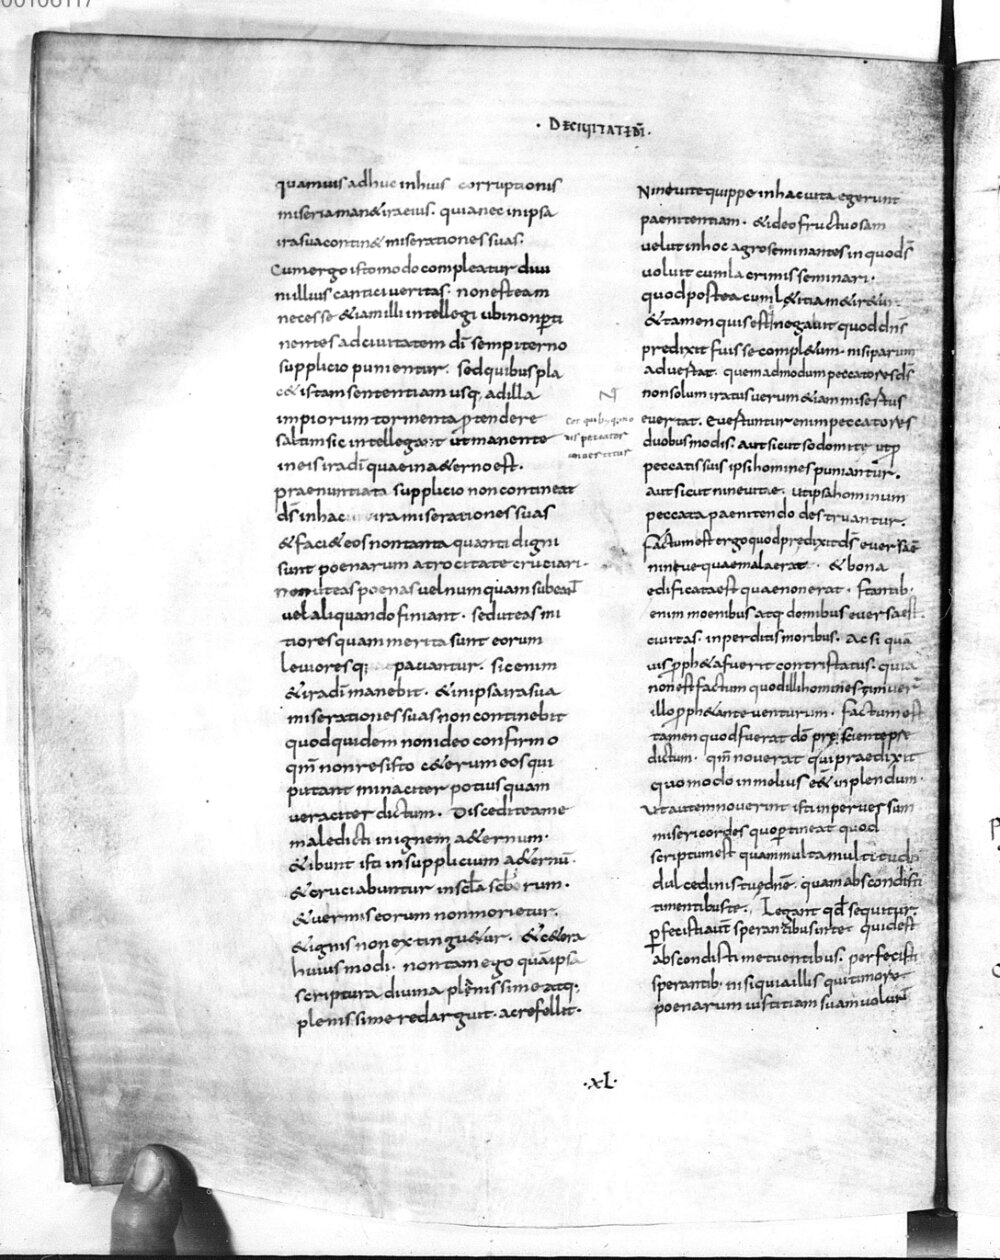 00106117
· DECIUITATEDĪ ·
quamuis adhuc inhuius corruptionis
miseria man& ira eius. quia nec in ipsa
ira sua contin& miserationes suas.
Cum ergo isto modo compleatur diui
ni illius cantici ueritas. non est eam
necesse &iam illi intellegi ubi non perti
nentes ad ciuitatem dī sempiterno
supplicio punientur. sed quibus pla
c& istam sententiam usq; ad illa
impiorum tormenta ptendere
saltim sic intellegant ut manente
in eis ira dī quae in a&erno est.
praenuntiata supplicio non contineat
ds̄ in hac ira miserationes suas
& faci& eos non tanta quanti digni
sunt poenarum atrocitate cruciari.
non ut eas poenas uel numquam subeant
uel aliquando finiant. sed ut eas mi
tiores quam merita sunt eorum
leuioresq; patiantur. sic enim
& ira dī manebit. & in ipsa ira sua
miserationes suas non continebit
quod quidem non ideo confirmo
qm̄ non resisto c&erum eos qui
putant minaciter potius quam
ueraciter dictum. Discedite a me
maledicti in ignem a&ernum.
& ibunt isti in supplicium a&ernū.
& cruciabuntur in scl̄a scl̄orum.
& uermis eorum non morietur.
& ignis non extingu&ur. & c&era
huiusmodi. non tam ego quā ipsa
scriptura diuina plenissime atq;
plenissime redarguit. ac refellit.
Nineuite quippe in hac uita egerunt
paenitentiam. & ideo fructuosam
uelut in hoc agro seminantes in quo ds̄
uoluit cum lacrimis seminari.
quod postea cum l&itia m&er&ur.
& tamen quis est negabit quod dns̄
predixit fuisse compl&um. nisi parum
aduertat. quemadmodum peccatores ds̄
non solum iratus uerum &iam misertus
euertat. Euertuntur enim peccatores
duobus modis. Aut sicut sodomite ut p
peccatis suis ipsi homines puniantur.
aut sicut nineuitae. ut ipsa hominum
peccata paenitendo destruantur.
Factum est ergo quod predixit ds̄ euersa ē
nineue quae mala erat. & bona
edificata est quae non erat. stantib;
enim moenibus atq; domibus euersa est
ciuitas. in perditis moribus. Ac si qua
uis pph&a fuerit contristatus. quia
non est factum quod illi homines timuer
illo pph&ante uenturum. factum est
tamen quod fuerat dō prescientepre
dictum. qm̄ nouerat qui praedixit
quomodo in melius ess& inplendum.
Ut autem nouerint isti in peruersum
misericordes quo pertineat quod
scriptum est quam multa multitudo
dulcedinis tuę dn̄e. quam abscondisti
timentibus te. Legant qd̄ sequitur.
pfecisti aut̄ sperantibus in te. quid est
abscondisti metuentibus. perfecisti
sperantib; nisi quia illis qui timore
poenarum iustitiam suam uolunt
· XL ·